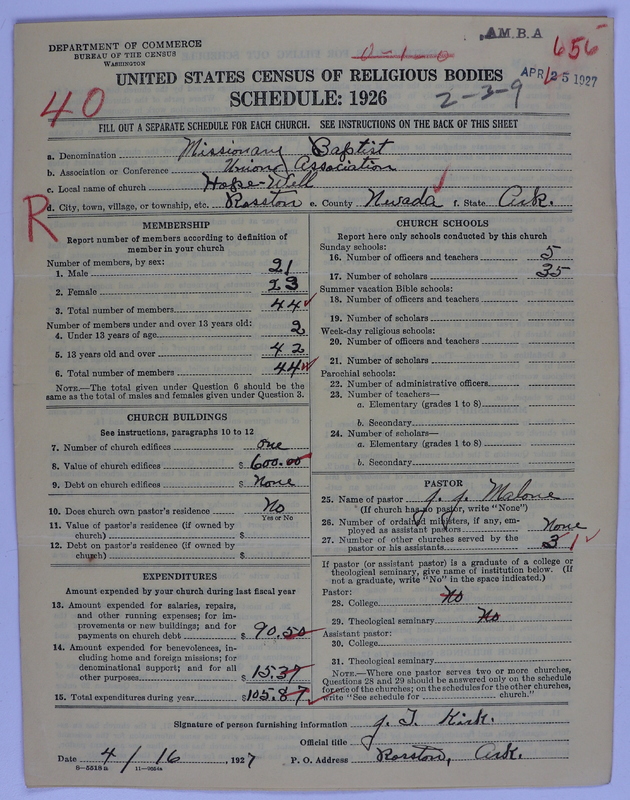 A.M.B.A
656
DEPARTMENT OF COMMERCE
BUREAU OF THE CENSUS
WASHINGTON
0-1-0
UNITED STATES CENSUS OF RELIGIOUS BODIES
APR 25 1927
40
SCHEDULE: 1926
2-3-9
FILL OUT A SEPARATE SCHEDULE FOR EACH CHURCH. SEE INSTRUCTIONS ON THE BACK OF THIS SHEET
a. Denomination Missionary Baptist
b. Association or Conference Union Association
c. Local name of church Hope-Well
R
d. City, town, village, or township, etc. Rosston e. County Nevada f. State Ark.
MEMBERSHIP
Report number of members according to definition of
member in your church
Number of members, by sex:
1. Male 21
2. Female 23
3. Total number of members 44
Number of members under and over 13 years old:
4. Under 13 years of age 2
5. 13 years old and over 42
6. Total number of members 44
NOTE.—The total given under Question 6 should be the
same as the total of males and females given under Question 3.
CHURCH BUILDINGS
See instructions, paragraphs 10 to 12
7. Number of church edifices one
8. Value of church edifices $ 600.00
9. Debt on church edifices $ None
10. Does church own pastor's residence No
Yes or No
11. Value of pastor's residence (if owned by
church) $
12. Debt on pastor's residence (if owned by
church) $
EXPENDITURES
Amount expended by your church during last fiscal year
13. Amount expended for salaries, repairs,
and other running expenses; for im-
provements or new buildings; and for
payments on church debt $ 90.50
14. Amount expended for benevolences, in-
cluding home and foreign missions; for
denominational support; and for all
other purposes $ 15.37
15. Total expenditures during year $ 105.87
CHURCH SCHOOLS
Report here only schools conducted by this church
Sunday schools:
16. Number of officers and teachers 5
17. Number of scholars 35
Summer vacation Bible schools:
18. Number of officers and teachers
19. Number of scholars
Week-day religious schools:
20. Number of officers and teachers
21. Number of scholars
Parochial schools:
22. Number of administrative officers
23. Number of teachers—
a. Elementary (grades 1 to 8)
b. Secondary
24. Number of scholars—
a. Elementary (grades 1 to 8)
b. Secondary
PASTOR
25. Name of pastor J. J. Malone
(If church has no pastor, write "None")
26. Number of ordained ministers, if any, em-
ployed as assistant pastors None
27. Number of other churches served by the
pastor or his assistants 3 1
If pastor (or assistant pastor) is a graduate of a college or
theological seminary, give name of institution below. (If
not a graduate, write "No" in the space indicated.)
Pastor:
28. College No
29. Theological seminary No
Assistant pastor:
30. College
31. Theological seminary
NOTE.—Where one pastor serves two or more churches,
Questions 28 and 29 should be answered only on the schedule
for one of the churches; on the schedules for the other churches,
write "See schedule for church."
Signature of person furnishing information J. T. Kirk.
Official title
Date 4/16, 1927 P. O. Address Rosston, Ark.
8-5518a 11-9054a